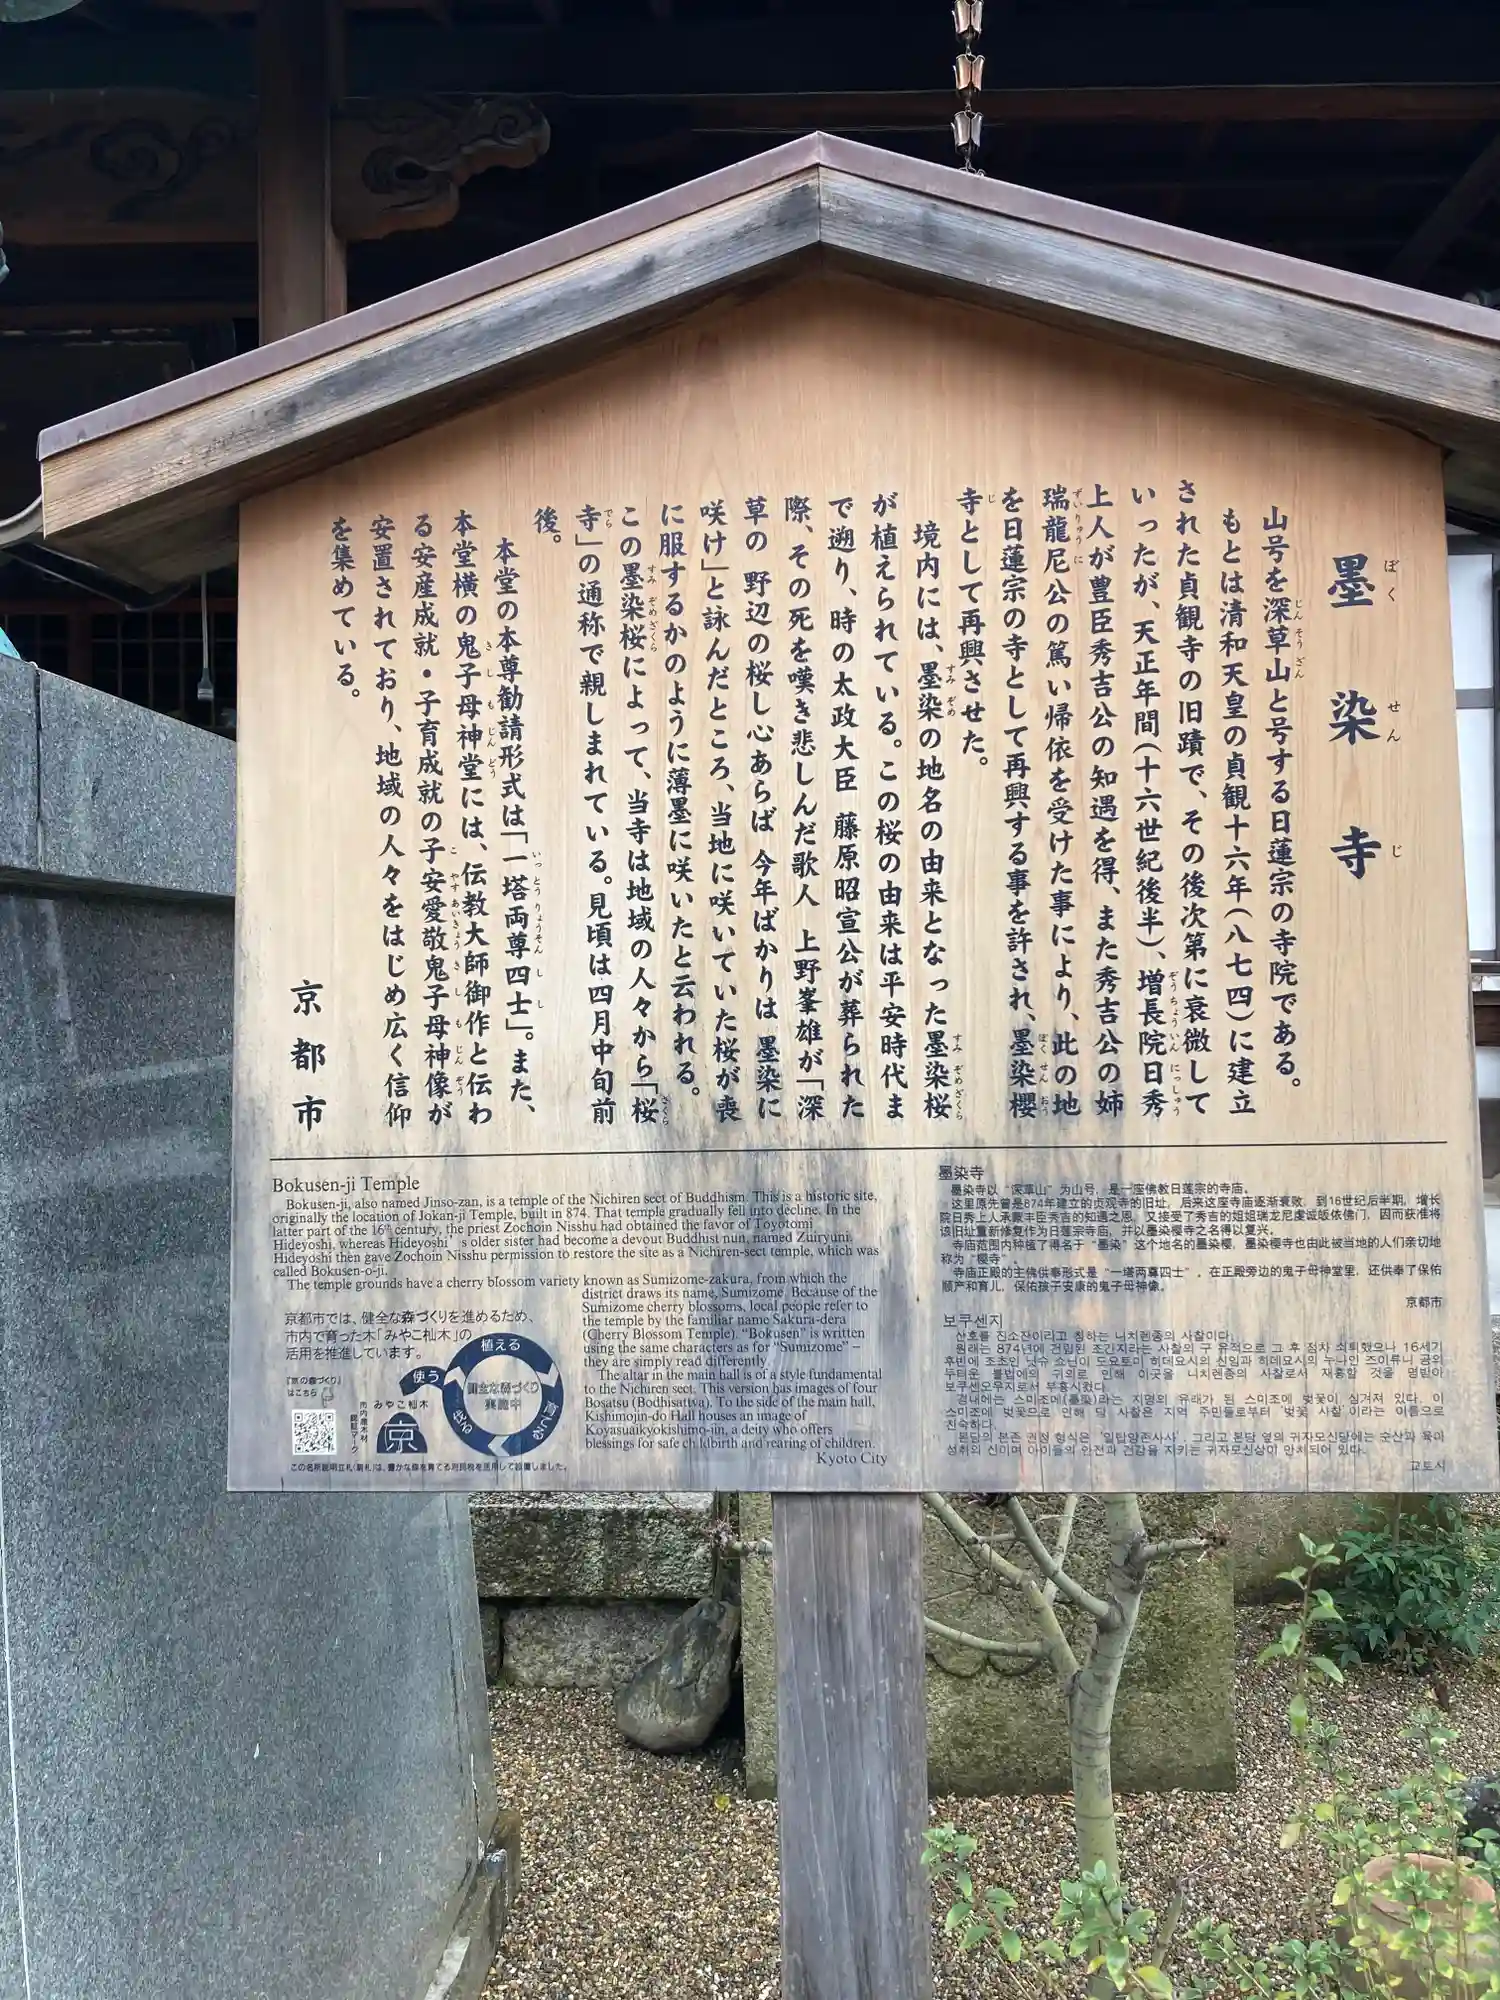 墨染寺
山号を深草山と号する日蓮宗の寺院である。
もとは清和天皇の貞観十六年（八七四）に建立
された貞観寺の旧蹟で、その後次第に衰微して
いったが、天正年間（十六世紀後半）、増長院日秀
上人が豊臣秀吉公の知遇を得、また秀吉公の姉
瑞龍尼公の篤い帰依を受けた事により、此の地
を日蓮宗の寺として再興する事を許され、墨染櫻
寺として再興させた。
境内には、墨染の地名の由来となった墨染桜
が植えられている。この桜の由来は平安時代ま
で遡り、時の太政大臣 藤原昭宣公が葬られた
際、その死を嘆き悲しんだ歌人 上野峯雄が「深
草の 野辺の桜し心あらば 今年ばかりは 墨染に
咲け」と詠んだところ、当地に咲いていた桜が喪
に服するかのように薄墨に咲いたと云われる。
この墨染桜によって、当寺は地域の人々から「桜
寺」の通称で親しまれている。見頃は四月中旬前
後。
本堂の本尊勧請形式は「一塔両尊四士」。また、
本堂横の鬼子母神堂には、伝教大師御作と伝わ
る安産成就・子育成就の子安愛敬鬼子母神像が
安置されており、地域の人々をはじめ広く信仰
を集めている。
京都市
Bokusen-ji Temple
Bokusen-ji, also named Jinso-zan, is a temple of the Nichiren sect of Buddhism. This is a historic site,
originally the location of Jokan-ji Temple, built in 874. That temple gradually fell into decline. In the
latter part of the 16th century, the priest Zochoin Nisshu had obtained the favor of Toyotomi
Hideyoshi, whereas Hideyoshi's older sister had become a devout Buddhist nun, named Zuiryuni.
Hideyoshi then gave Zochoin Nisshu permission to restore the site as a Nichiren-sect temple, which was
called Bokusen-o-ji.
The temple grounds have a cherry blossom variety known as Sumizome-zakura, from which the
district draws its name, Sumizome. Because of the
Sumizome cherry blossoms, local people refer to
the temple by the familiar name Sakura-dera
(Cherry Blossom Temple). "Bokusen" is written
using the same characters as for "Sumizome" –
they are simply read differently.
The altar in the main hall is of a style fundamental
to the Nichiren sect. This version has images of four
Bosatsu (Bodhisattva). To the side of the main hall,
Kishimojin-do Hall houses an image of
Koyasuaikyokishimo-jin, a deity who offers
blessings for safe childbirth and rearing of children.
Kyoto City
京都市では、健全な森づくりを進めるため、
市内で育った木「みやこ杣木」の
活用を推進しています。
『京の森づくり』
はこちら
市内産木材
認証マーク
みやこ杣木
京
植える
育てる
伐る
使う
健全な森づくり
実施中
この名所説明立札（駒札）は、豊かな森を育てる府民税を活用して設置しました。
墨染寺
墨染寺以“深草山”为山号，是一座佛教日莲宗的寺庙。
这里原先曾是874年建立的贞观寺的旧址，后来这座寺庙逐渐衰败，到16世纪后半期，增长
院日秀上人承蒙丰臣秀吉的知遇之恩，又接受了秀吉的姐姐瑞龙尼虔诚皈依佛门，因而获准将
该旧址重新修复作为日莲宗寺庙，并以墨染樱寺之名得以复兴。
寺庙范围内种植了得名于“墨染”这个地名的墨染樱，墨染樱寺也由此被当地的人们亲切地
称为“樱寺”。
寺庙正殿的主佛供奉形式是“一塔两尊四士”，在正殿旁边的鬼子母神堂里，还供奉了保佑
顺产和育儿，保佑孩子安康的鬼子母神像。
京都市
보쿠센지
산호를 진소잔이라고 칭하는 니치렌종의 사찰이다.
원래는 874년에 건립된 조간지라는 사찰의 구 유적으로 그 후 점차 쇠퇴했으나 16세기
후반에 조초인 닛슈 쇼닌이 도요토미 히데요시의 신임과 히데요시의 누나인 즈이류니 공의
두터운 불법에의 귀의로 인해 이곳을 니치렌종의 사찰로서 재흥할 것을 명받아
보쿠센오우지로서 부흥시켰다.
경내에는 스미조메(墨染)라는 지명의 유래가 된 스미조메 벚꽃이 심겨져 있다. 이
스미조메 벚꽃으로 인해 당 사찰은 지역 주민들로부터 '벚꽃 사찰'이라는 이름으로
친숙하다.
본당의 본존 권청 형식은 '일탑양존사사'. 그리고 본당 옆의 귀자모신당에는 순산과 육아
성취의 신이며 아이들의 안전과 건강을 지키는 귀자모신상이 안치되어 있다.
교토시